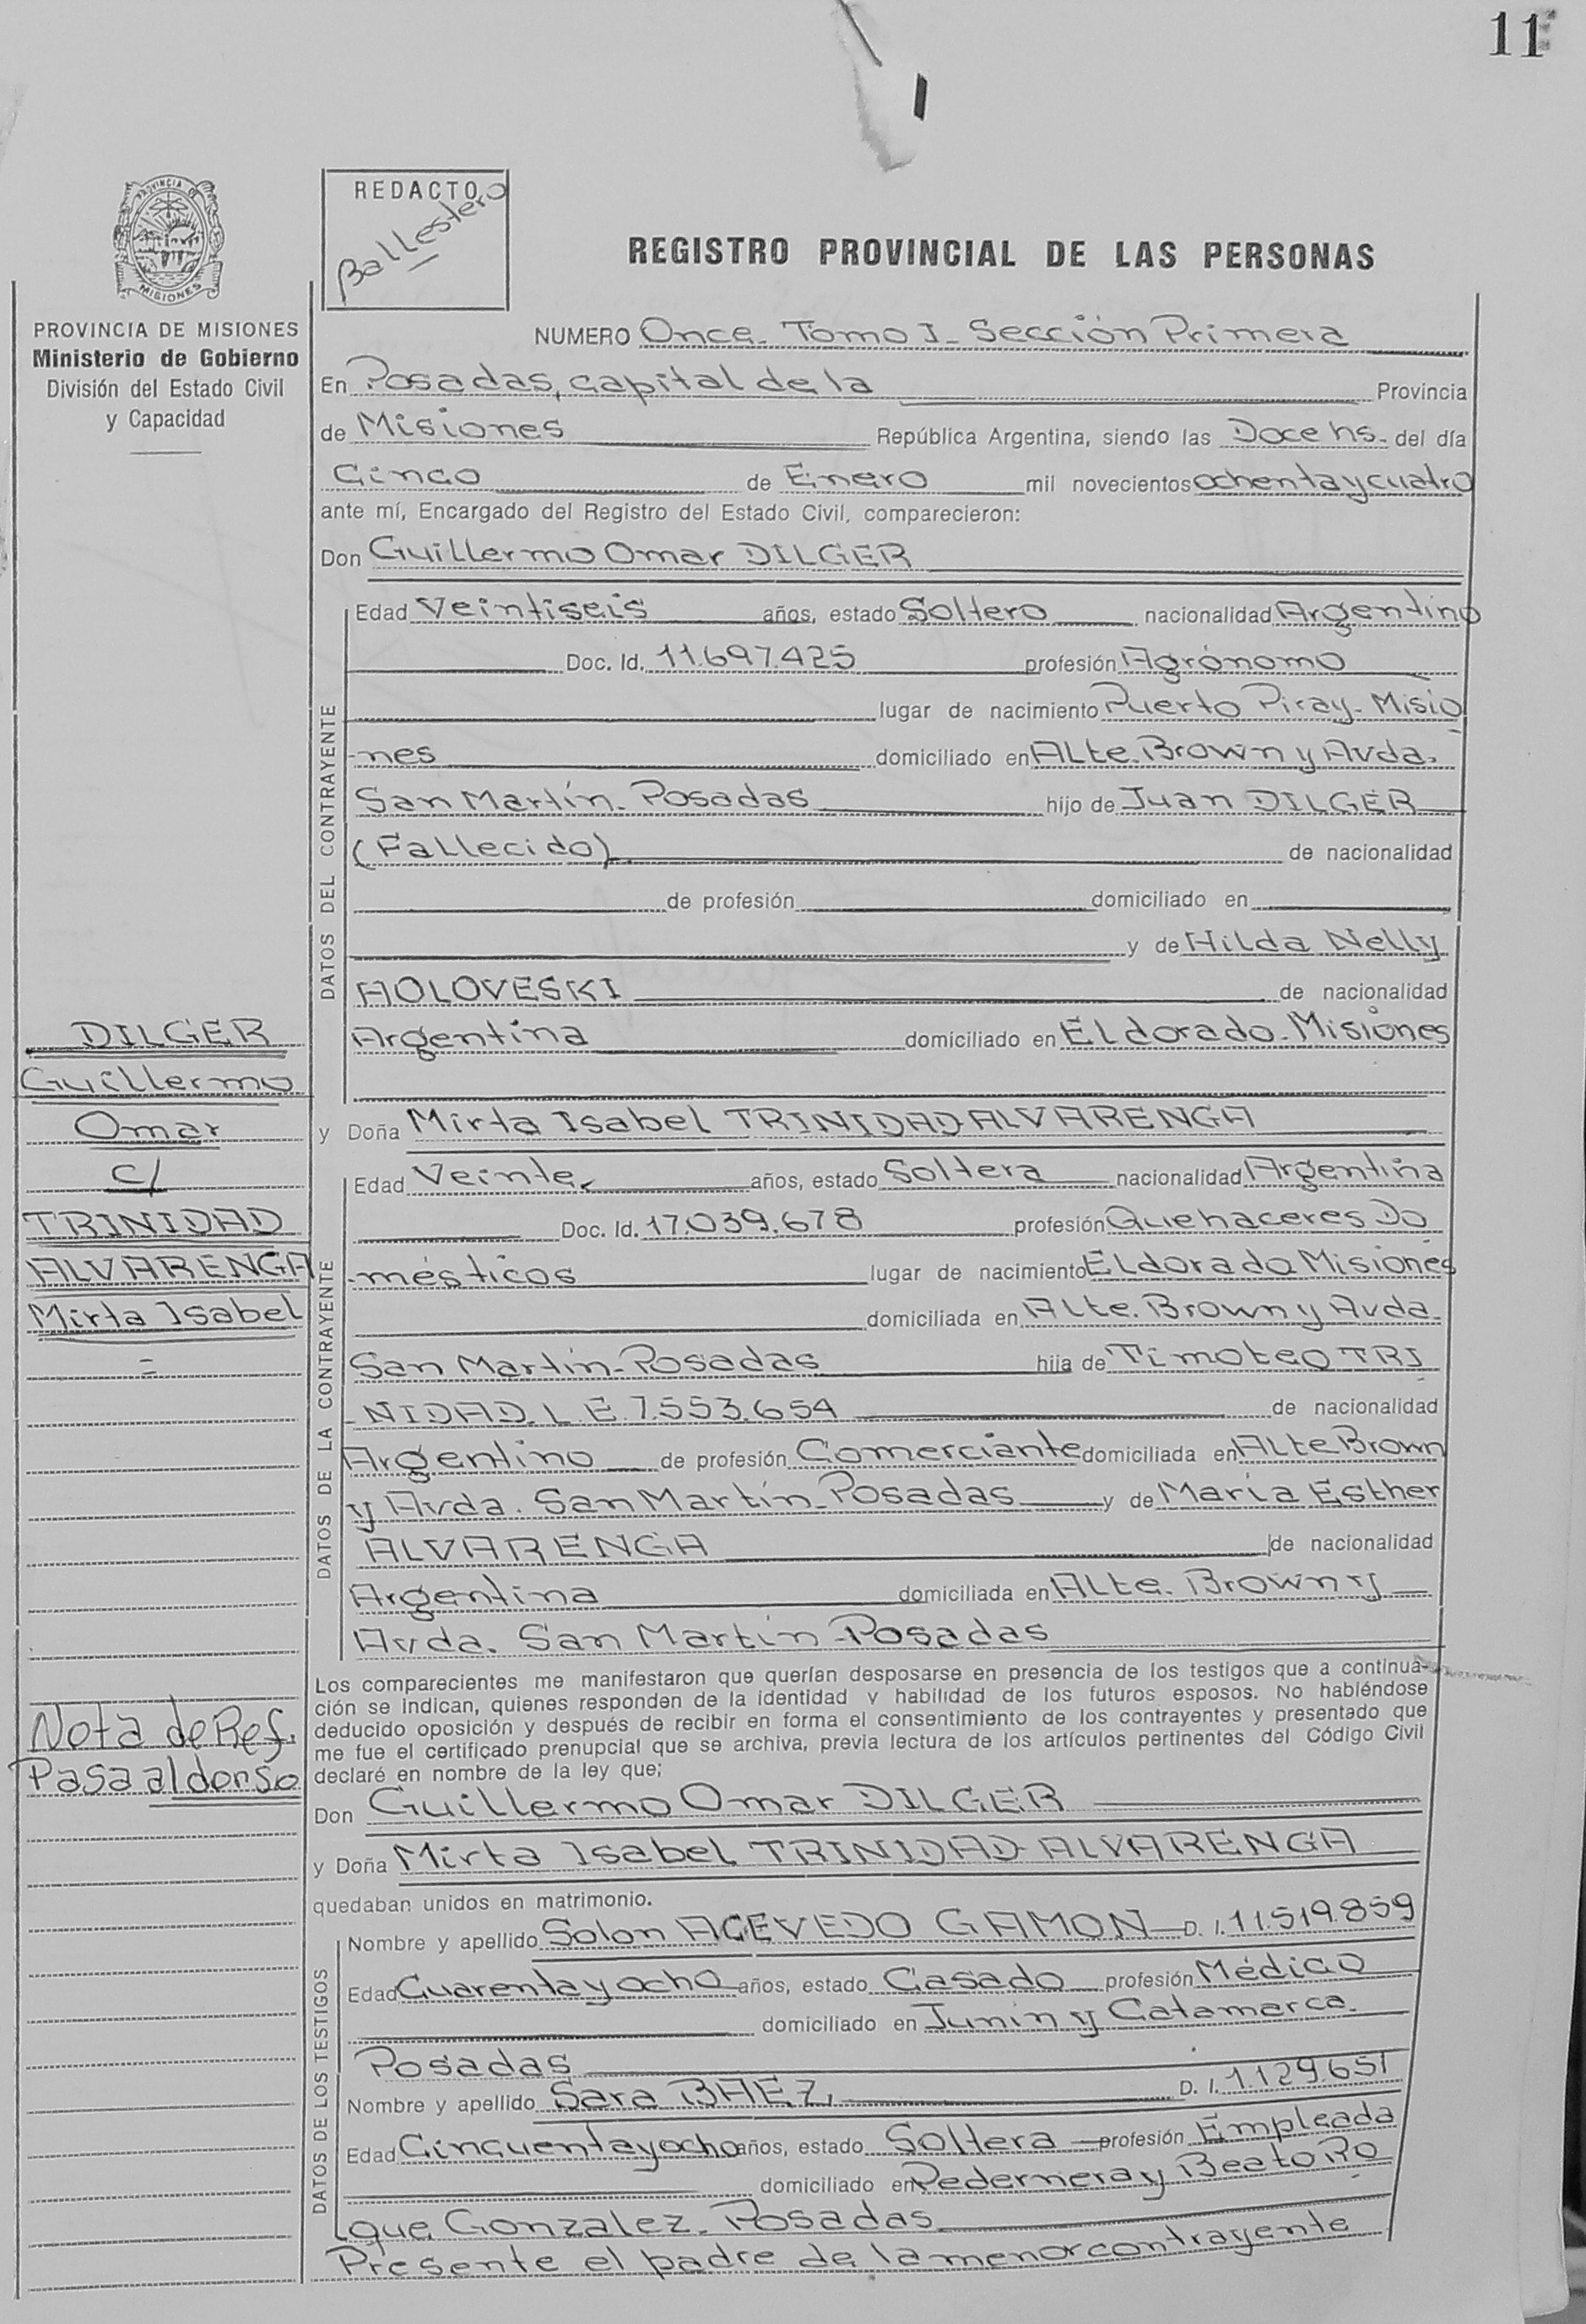 11
REDACTO
Ballestero
PROVINCIA DE
MISIONES
REGISTRO PROVINCIAL DE LAS PERSONAS
PROVINCIA DE MISIONES
Ministerio de Gobierno
División del Estado Civil
y Capacidad
NUMERO Once_ Tomo I_ Sección Primera
En Posadas, capital de la Provincia
de Misiones República Argentina, siendo las Doce hs. del día
Cinco de Enero mil novecientos ochenta y cuatro
ante mí, Encargado del Registro del Estado Civil, comparecieron:
Don Guillermo Omar DILGER
DATOS DEL CONTRAYENTE
Edad Veintiseis años, estado Soltero nacionalidad Argentino
Doc. Id. 11.697.425 profesión Agrónomo
lugar de nacimiento Puerto Piray- Misio
-nes domiciliado en Alte. Brown y Avda.
San Martín_ Posadas hijo de Juan DILGER
(Fallecido) de nacionalidad
de profesión domiciliado en
y de Hilda Nelly
AOLOVESKI de nacionalidad
Argentina domiciliado en Eldorado_ Misiones
y Doña Mirta Isabel TRINIDAD ALVARENGA
DATOS DE LA CONTRAYENTE
Edad Veinte, años, estado Soltera nacionalidad Argentina
Doc. Id. 17.039.678 profesión Quehaceres Do
-mésticos lugar de nacimiento Eldorado Misiones
domiciliada en Alte. Brown y Avda.
San Martín-Posadas hija de Timoteo TRI
-NIDAD. L.E. 7.553.654 de nacionalidad
Argentino de profesión Comerciante domiciliada en Alte Brown
y Avda. San Martín_ Posadas y de María Esther
ALVARENGA de nacionalidad
Argentina domiciliada en Alte. Brown y
Avda. San Martín-Posadas
DILGER
Guillermo
Omar
c/
TRINIDAD
ALVARENGA
Mirta Isabel
=
Nota de Ref.
Pasa al dorso
Los comparecientes me manifestaron que querían desposarse en presencia de los testigos que a continua-
ción se indican, quienes responden de la identidad y habilidad de los futuros esposos. No habiéndose
deducido oposición y después de recibir en forma el consentimiento de los contrayentes y presentado que
me fue el certificado prenupcial que se archiva, previa lectura de los artículos pertinentes del Código Civil
declaré en nombre de la ley que;
Don Guillermo Omar DILGER
y Doña Mirta Isabel TRINIDAD ALVARENGA
quedaban unidos en matrimonio.
DATOS DE LOS TESTIGOS
Nombre y apellido Solon ACEVEDO GAMON D. I. 11.519.859
Edad Cuarenta y ocho años, estado Casado profesión Médico
domiciliado en Junín y Catamarca.
Posadas
Nombre y apellido Sara BAEZ, D. I. 1.129.651
Edad Cincuenta y ocho años, estado Soltera profesión Empleada
domiciliado en Pedernera y Beato Ro
que Gonzalez_ Posadas
Presente el padre de la menor contrayente